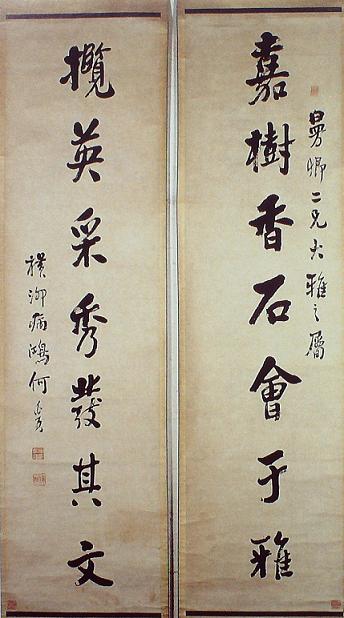 曼卿二兄大雅之屬
嘉樹香石會于雅
攬英采秀發其文
横泖病鴻何長治